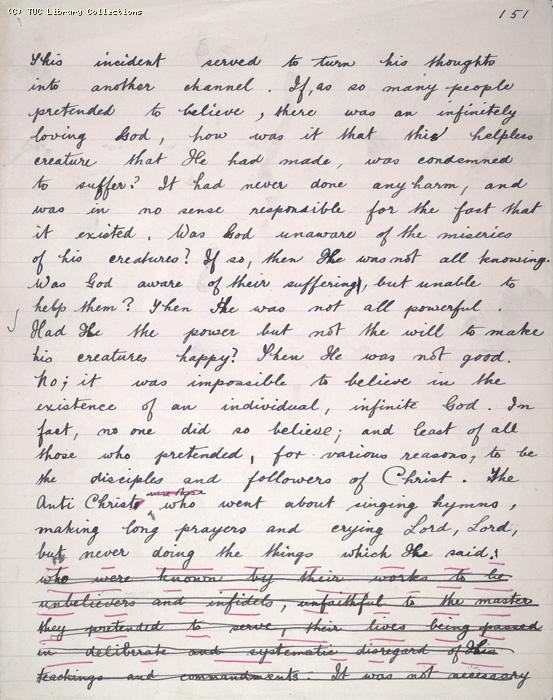 (C) TUC Library Collections
151
This incident served to turn his thoughts
into another channel. If, as so many people
pretended to believe, there was an infinitely
loving God, how was it that this helpless
creature that He had made, was condemned
to suffer? It had never done any harm, and
was in no sense responsible for the fact that
it existed. Was God unaware of the miseries
of his creatures? If so, then He was not all knowing.
Was God aware of their suffering, but unable to
help them? Then He was not all powerful.
Had He the power but not the will to make
his creatures happy? Then He was not good.
No; it was impossible to believe in the
existence of an individual, infinite God. In
fact, no one did so believe; and least of all
those who pretended, for various reasons, to be
the disciples and followers of Christ. The
were those
Anti Christs who went about singing hymns,
making long prayers and crying Lord, Lord,
but never doing the things which He said;
who were known by their works to be
unbelievers and infidels, unfaithful to the master
they pretended to serve, their lives being passed
in deliberate and systematic disregard of His
teachings and commandments. It was not necessary